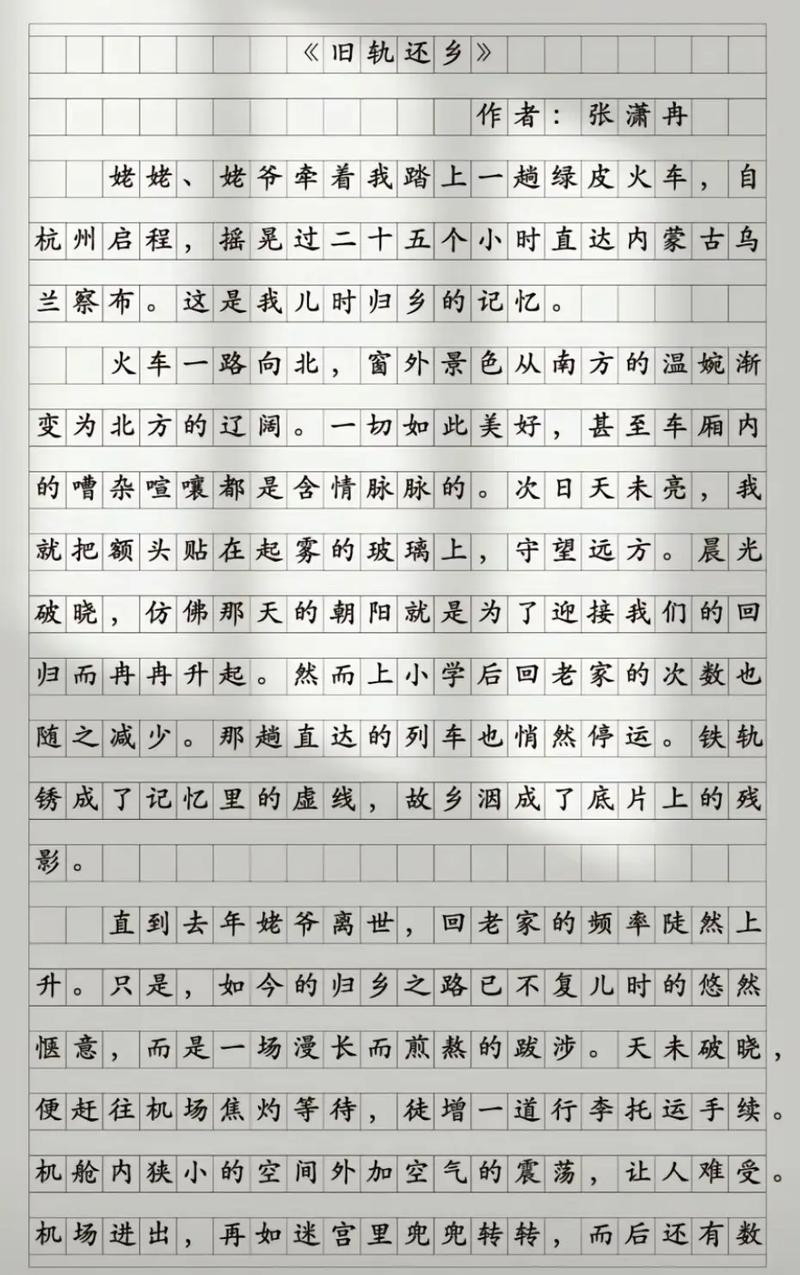 《旧轨还乡》
作者：张潇冉
姥姥、姥爷牵着我踏上一趟绿皮火车，自
杭州启程，摇晃过二十五个小时直达内蒙古乌
兰察布。这是我儿时归乡的记忆。
火车一路向北，窗外景色从南方的温婉渐
变为北方的辽阔。一切如此美好，甚至车厢内
的嘈杂喧嚷都是含情脉脉的。次日天未亮，我
就把额头贴在起雾的玻璃上，守望远方。晨光
破晓，仿佛那天的朝阳就是为了迎接我们的回
归而冉冉升起。然而上小学后回老家的次数也
随之减少。那趟直达的列车也悄然停运。铁轨
锈成了记忆里的虚线，故乡洇成了底片上的残
影。
直到去年姥爷离世，回老家的频率陡然上
升。只是，如今的归乡之路已不复儿时的悠然
惬意，而是一场漫长而煎熬的跋涉。天未破晓，
便赶往机场焦灼等待，徒增一道行李托运手续。
机舱内狭小的空间外加空气的震荡，让人难受。
机场进出，再如迷宫里兜兜转转，而后还有数